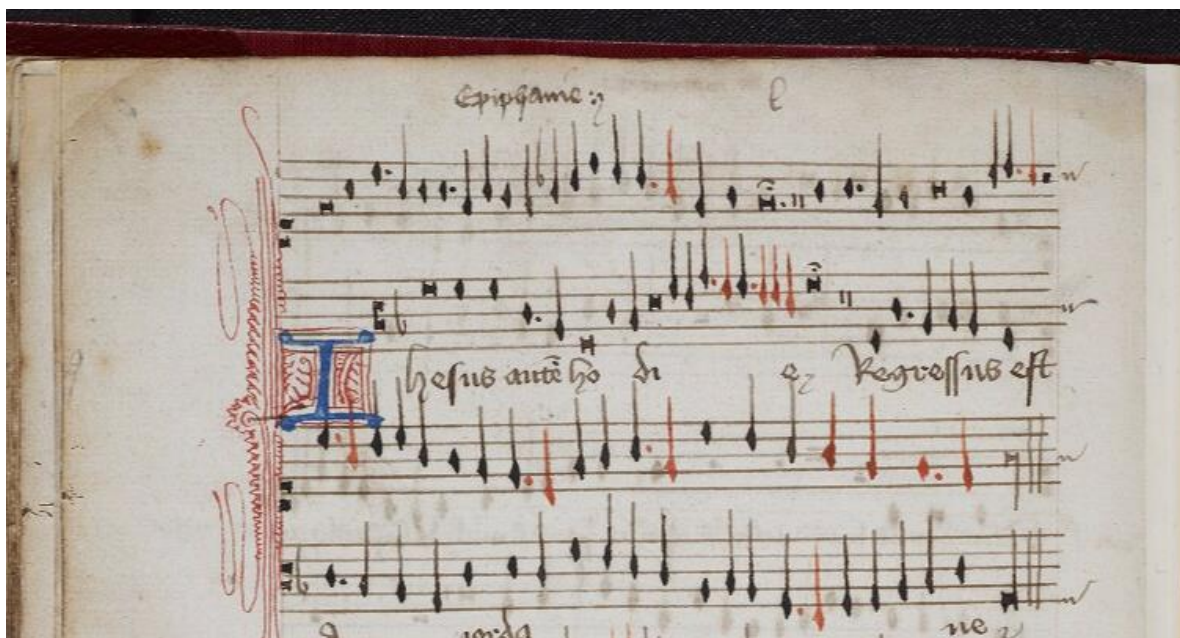 Epiphanie
I hesus autē ho di e Regressus est
iorda ne